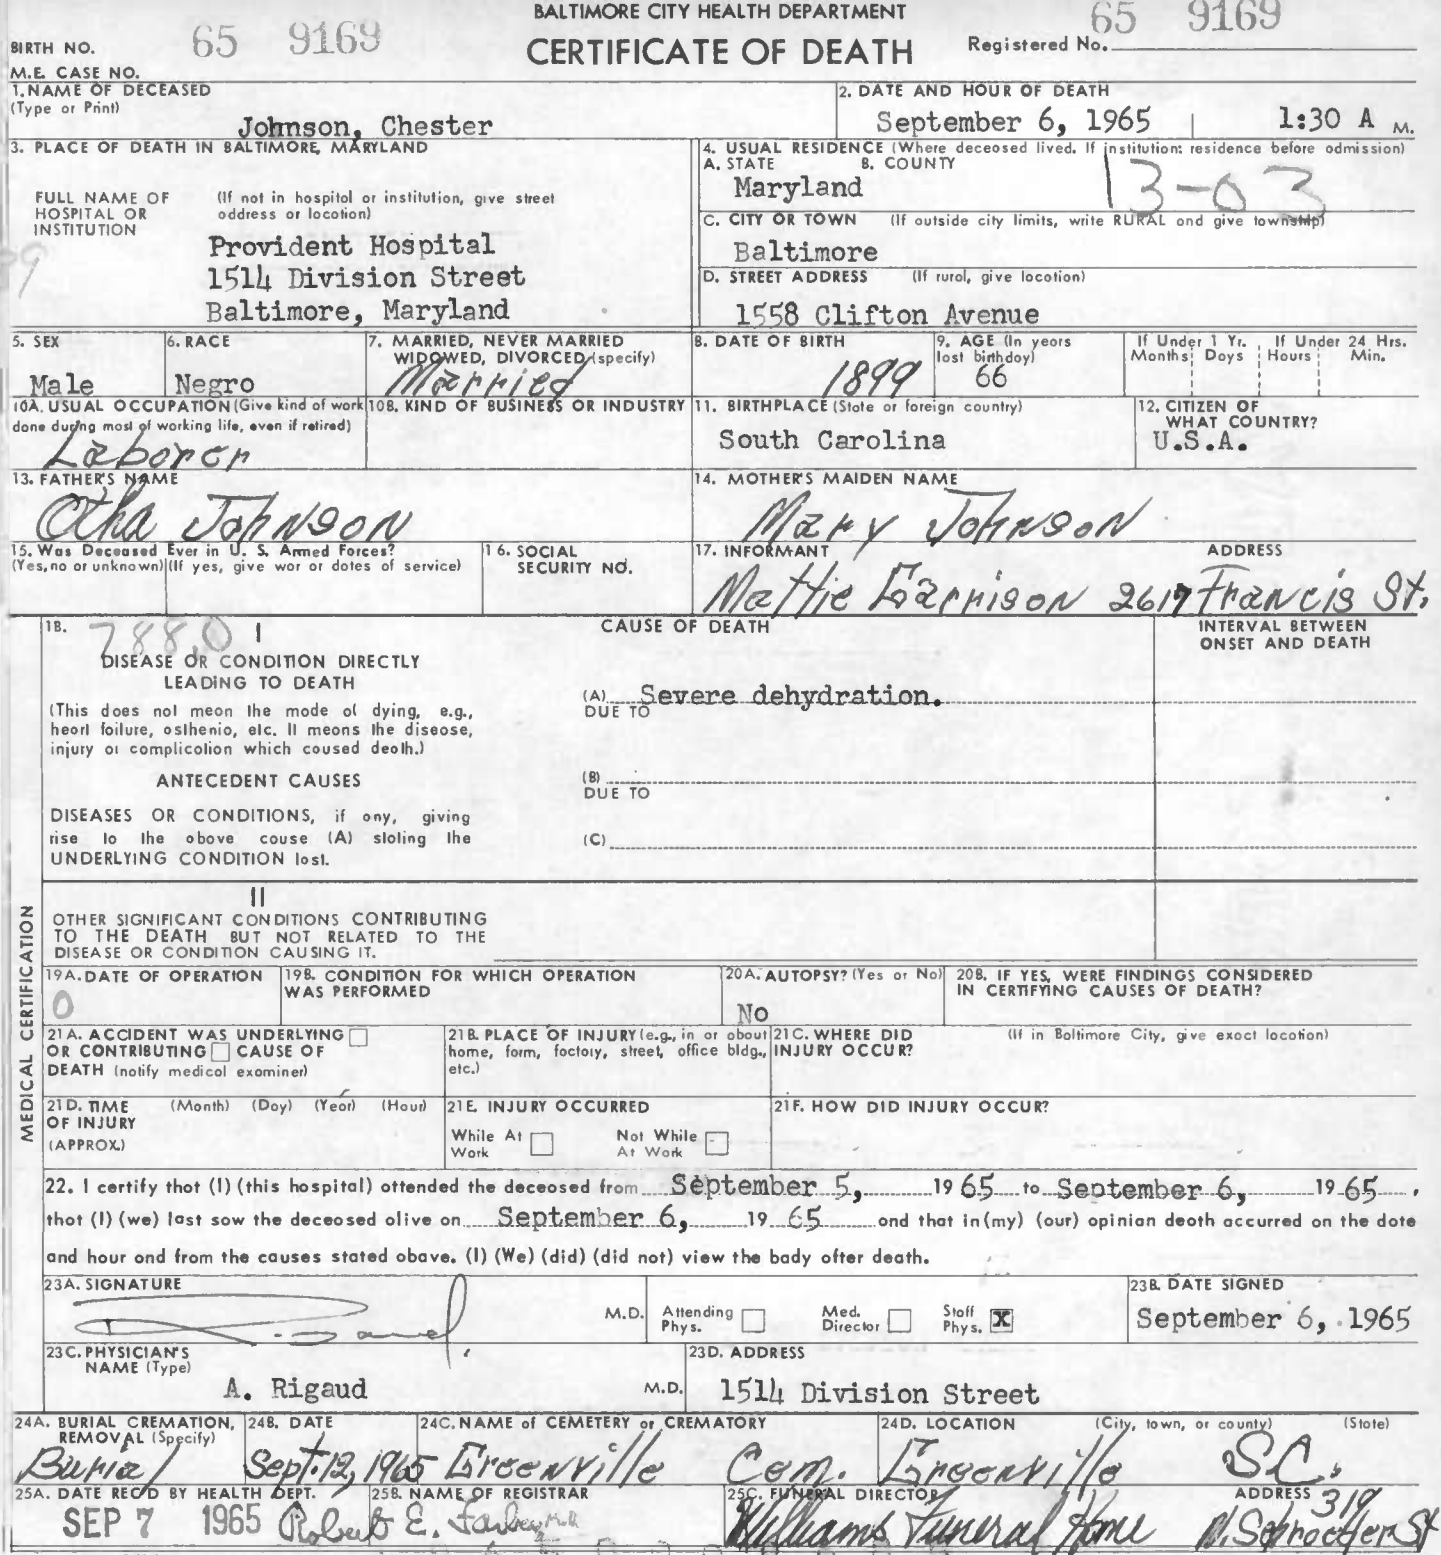 BALTIMORE CITY HEALTH DEPARTMENT
CERTIFICATE OF DEATH
BIRTH NO. 65 9169
Registered No. 65 9169
M.E. CASE NO.
1. NAME OF DECEASED
(Type or Print)
Johnson, Chester
2. DATE AND HOUR OF DEATH
September 6, 1965 1:30 A M.
3. PLACE OF DEATH IN BALTIMORE, MARYLAND
FULL NAME OF HOSPITAL OR INSTITUTION
(If not in hospital or institution, give street address or location)
Provident Hospital
1514 Division Street
Baltimore, Maryland
4. USUAL RESIDENCE (Where deceased lived. If institution: residence before admission)
A. STATE B. COUNTY
Maryland 13-03
C. CITY OR TOWN (If outside city limits, write RURAL and give township)
Baltimore
D. STREET ADDRESS (If rural, give location)
1558 Clifton Avenue
5. SEX
Male
6. RACE
Negro
7. MARRIED, NEVER MARRIED
WIDOWED, DIVORCED (specify)
Married
8. DATE OF BIRTH
1899
9. AGE (In years last birthday)
66
If Under 1 Yr. Months Days
If Under 24 Hrs. Hours Min.
10A. USUAL OCCUPATION (Give kind of work
done during most of working life, even if retired)
Laborer
10B. KIND OF BUSINESS OR INDUSTRY
11. BIRTHPLACE (State or foreign country)
South Carolina
12. CITIZEN OF WHAT COUNTRY?
U.S.A.
13. FATHER'S NAME
Otha Johnson
14. MOTHER'S MAIDEN NAME
Mary Johnson
15. Was Deceased Ever in U. S. Armed Forces?
(Yes, no or unknown) (If yes, give war or dates of service)
16. SOCIAL SECURITY NO.
17. INFORMANT ADDRESS
Mattie Garrison 2617 Francis St.
MEDICAL CERTIFICATION
18. 788.0 I
DISEASE OR CONDITION DIRECTLY
LEADING TO DEATH
(This does not mean the mode of dying, e.g.,
heart failure, asthenia, etc. It means the disease,
injury or complication which caused death.)
ANTECEDENT CAUSES
DISEASES OR CONDITIONS, if any, giving
rise to the above cause (A) stating the
UNDERLYING CONDITION last.
CAUSE OF DEATH
(A) Severe dehydration.
DUE TO
(B)
DUE TO
(C)
INTERVAL BETWEEN
ONSET AND DEATH
II
OTHER SIGNIFICANT CONDITIONS CONTRIBUTING
TO THE DEATH BUT NOT RELATED TO THE
DISEASE OR CONDITION CAUSING IT.
19A. DATE OF OPERATION
0
19B. CONDITION FOR WHICH OPERATION
WAS PERFORMED
20A. AUTOPSY? (Yes or No)
No
20B. IF YES, WERE FINDINGS CONSIDERED
IN CERTIFYING CAUSES OF DEATH?
21A. ACCIDENT WAS UNDERLYING
OR CONTRIBUTING CAUSE OF
DEATH (notify medical examiner)
21B. PLACE OF INJURY (e.g., in or about
home, farm, factory, street, office bldg.,
etc.)
21C. WHERE DID INJURY OCCUR?
(If in Baltimore City, give exact location)
21D. TIME OF INJURY (APPROX.)
(Month) (Day) (Year) (Hour)
21E. INJURY OCCURRED
While At Work Not While At Work
21F. HOW DID INJURY OCCUR?
22. I certify that (I) (this hospital) attended the deceased from September 5, 1965 to September 6, 1965,
that (I) (we) last saw the deceased alive on September 6, 1965 and that in (my) (our) opinion death occurred on the date
and hour and from the causes stated above. (I) (We) (did) (did not) view the body after death.
23A. SIGNATURE
M.D. Attending Phys. Med. Director Staff Phys. X
23B. DATE SIGNED
September 6, 1965
23C. PHYSICIAN'S NAME (Type)
A. Rigaud M.D.
23D. ADDRESS
1514 Division Street
24A. BURIAL CREMATION,
REMOVAL (Specify)
Burial
24B. DATE
Sept. 12, 1965
24C. NAME of CEMETERY or CREMATORY
Greenville Cem.
24D. LOCATION (City, town, or county) (State)
Greenville S.C.
25A. DATE REC'D BY HEALTH DEPT.
SEP 7 1965
25B. NAME OF REGISTRAR
Robert E. Farber, M.D.
25C. FUNERAL DIRECTOR ADDRESS
Williams Funeral Home 319 N. Schroeder St